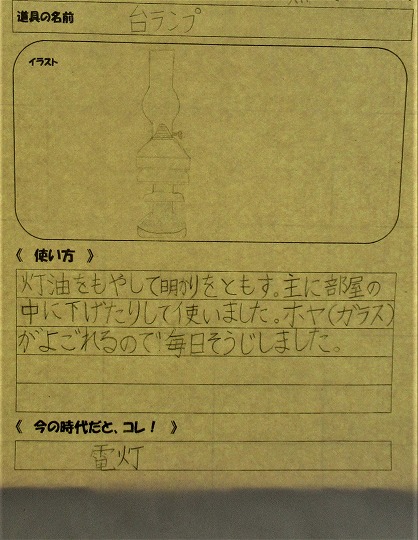 道具の名前
台ランプ
イラスト
《 使い方 》
灯油をもやして明かりをともす。主に部屋の
中に下げたりして使いました。ホヤ(ガラス)
がよごれるので毎日そうじしました。
《 今の時代だと、コレ! 》
電灯